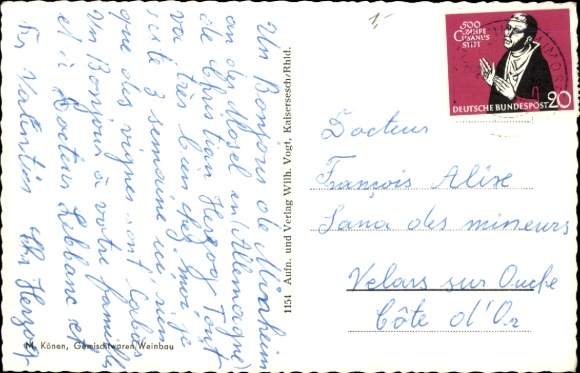 Un Bonjour de Monheim
an der Mosel en (Allemagne)
de Christian Herzog Tout
va très bien chez moi je
reste 3 semaine ici, rien
que des vignes ont labas
Un Bonjour à votre famille
et à Docteur Leblanc et
Fr Valentin Chr Herzog
M. Könen, Gemischtwaren Weinbau
1154 Aufn. und Verlag Wilh. Vogt, Kaisersesch/Rhld.
500
JAHRE
CUSANUS
STIFT
DEUTSCHE BUNDESPOST 20
Docteur
François Alixe
Sana des mineurs
Velars sur Ouche
Côte d'Or